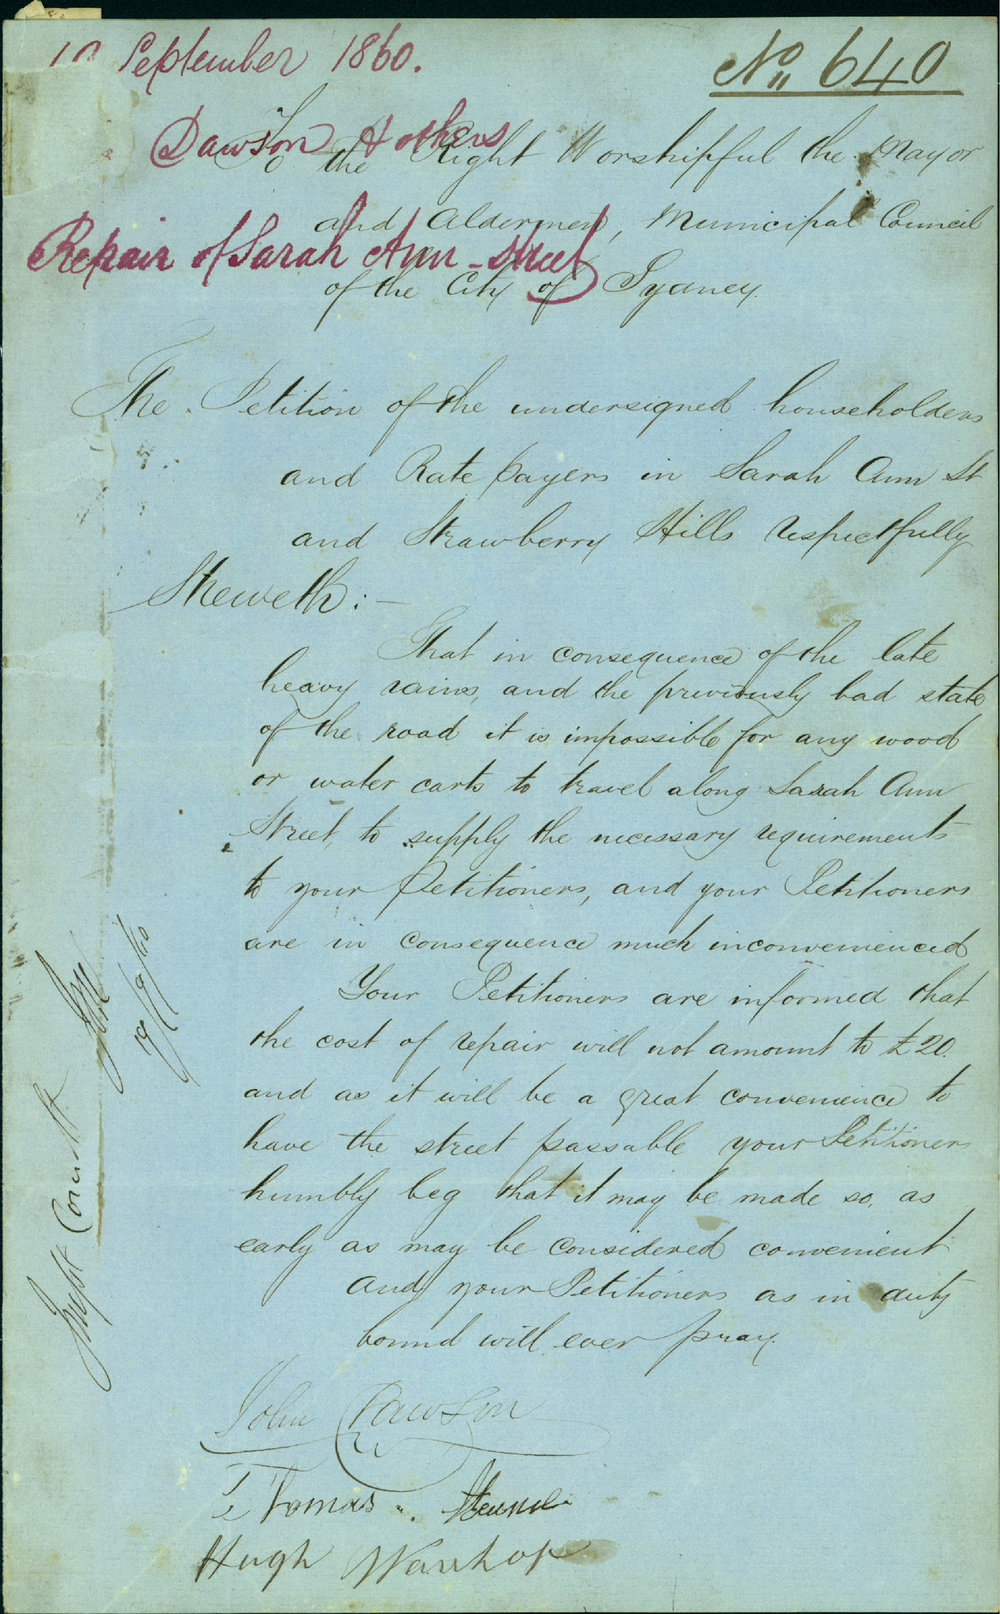 September 1860.
No 640
Dawson & others
To the Right Worshipful the Mayor
and Aldermen, Municipal Council
Repair of Sarah Ann-street
of the City of Sydney.
The Petition of the undersigned householders
and Rate payers in Sarah Ann St
and Strawberry Hills respectfully
Sheweth:-
That in consequence of the late
heavy rains, and the previously bad state
of the road it is impossible for any wood
or water carts to travel along Sarah Ann
Street, to supply the necessary requirements
to your Petitioners, and your Petitioners
are in consequence much inconvenienced
Your Petitioners are informed that
the cost of repair will not amount to £20.
and as it will be a great convenience to
have the street passable your Petitioners
humbly beg that it may be made so, as
early as may be considered convenient
and your Petitioners as in duty
bound will ever pray.
John Dawson
Thomas
Hugh Wauhop